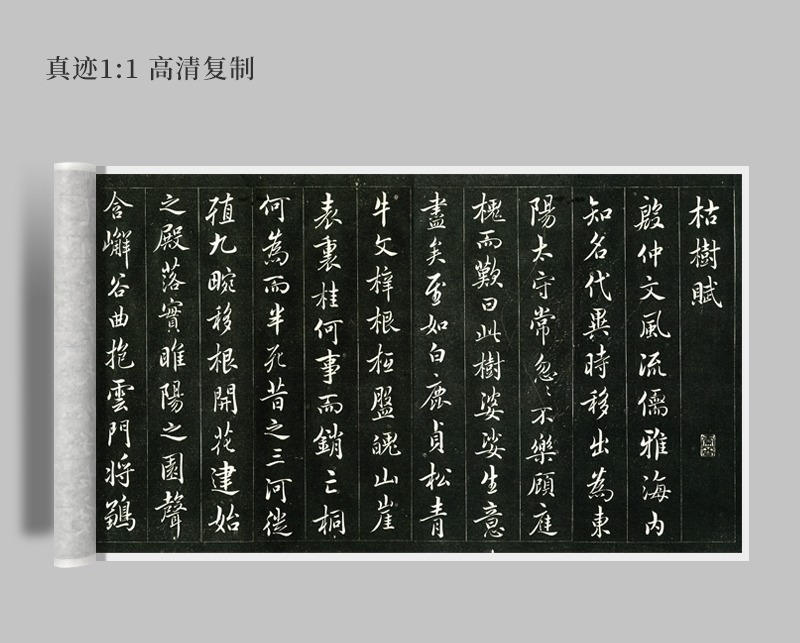 真迹1:1 高清复制
枯樹賦
殷仲文風流儒雅海内
知名代異時移出為東
陽太守常忽々不樂顧庭
槐而歎曰此樹婆娑生意
盡矣至如白鹿貞松青
牛文梓根柢盤魄山崖
表裏桂何事而銷亡桐
何為而半死昔之三河徙
殖九畹移根開花建始
之殿落實睢陽之園聲
含嶰谷曲抱雲門将鶵